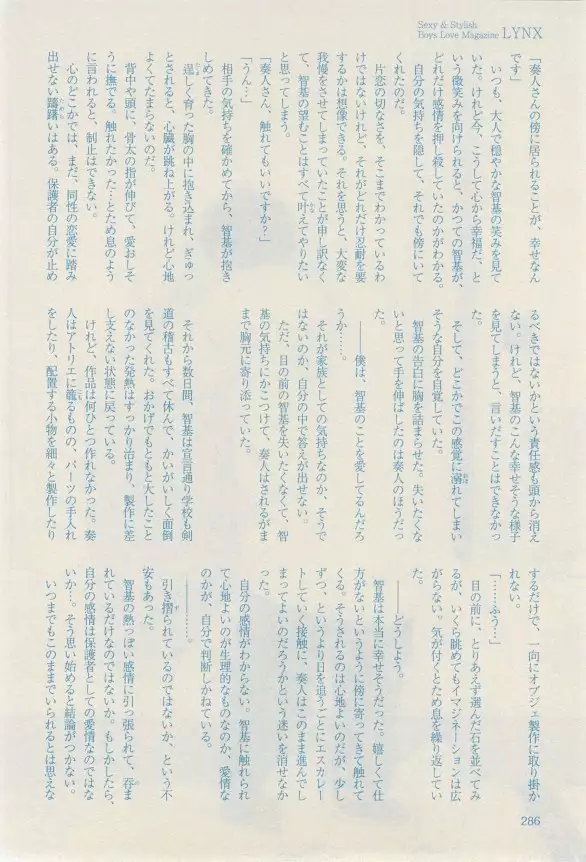 Sexy & Stylish
Boys Love Magazine LYNX
「奏人さんの傍に居られることが、幸せなん
です」
いつも、大人で穏やかな智基の笑みを見て
いた。けれど今、こうして心から幸福だ、と
いう微笑みを向けられると、かつての智基が、
どれだけ感情を押し殺していたのかがわかる。
自分の気持ちを隠して、それでも傍にいて
くれたのだ。
片恋の切なさを、そこまでわかっているわ
けではないけれど、それがどれだけ忍耐を要
するかは想像できる。それを思うと、大変な
我慢をさせてしまっていたことが申し訳なく
て、智基の望むことはすべて叶えてやりたい
と思ってしまう。
「奏人さん、触れてもいいですか?」
「うん…」
相手の気持ちを確かめてから、智基が抱き
しめてきた。
逞しく育った胸の中に抱き込まれ、ぎゅっ
とされると、心臓が跳ね上がる。けれど心地
よくてたまらないのだ。
背中や頭に、骨太の指が伸びて、愛おしそ
うに撫でる。触れたかった…とため息のよう
に言われると、制止はできない。
心のどこかでは、まだ、同性の恋愛に踏み
出せない躊躇いはある。保護者の自分が止め
るべきではないかという責任感も頭から消え
ない。けれど、智基のこんな幸せそうな様子
を見てしまうと、言いだすことはできなかっ
た。
そして、どこかでこの感覚に溺れてしまい
そうな自分を自覚していた。
智基の告白に胸を詰まらせた。失いたくな
いと思って手を伸ばしたのは奏人のほうだっ
た。
――僕は、智基のことを愛してるんだろ
うか……。
それが家族としての気持ちなのか、そうで
はないのか、自分の中で答えが出せない。
ただ、目の前の智基を失いたくなくて、智
基の気持ちにかこつけて、奏人はされるがま
まで胸元に寄り添っていた。
それから数日間、智基は宣言通り学校も剣
道の稽古もすべて休んで、かいがいしく面倒
を見てくれた。おかげでもともと大したこと
のなかった発熱はすっかり治まり、製作に差
し支えない状態に戻っている。
けれど、作品は何ひとつ作れなかった。奏
人はアトリエに籠るものの、パーツの手入れ
をしたり、配置する小物を細々と製作したり
するだけで、一向にオブジェ製作に取り掛か
れない。
「……ふう…」
目の前に、とりあえず選んだ石を並べてみ
るが、いくら眺めてもイマジネーションは広
がらない。気が付くとため息を繰り返してい
た。
――どうしよう。
智基は本当に幸せそうだった。嬉しくて仕
方がないというように傍に寄ってきて触れて
くる。そうされるのは心地よいのだが、少し
ずつ、というより日を追うごとにエスカレー
トしていく接触に、奏人はこのまま進んでし
まってよいのだろうかという迷いを消せなか
った。
自分の感情がわからない。智基に触れられ
て心地よいのが生理的なものなのか、愛情な
のかが、自分で判断しかねている。
――………。
引き摺られているのではないか、という不
安もあった。
智基の熱っぽい感情に引っ張られて、呑ま
れているだけなのではないか。もしかしたら、
自分の感情は保護者としての愛情なのではな
いか…。そう思い始めると結論がつかない。
いつまでもこのままでいられるとは思えな
286